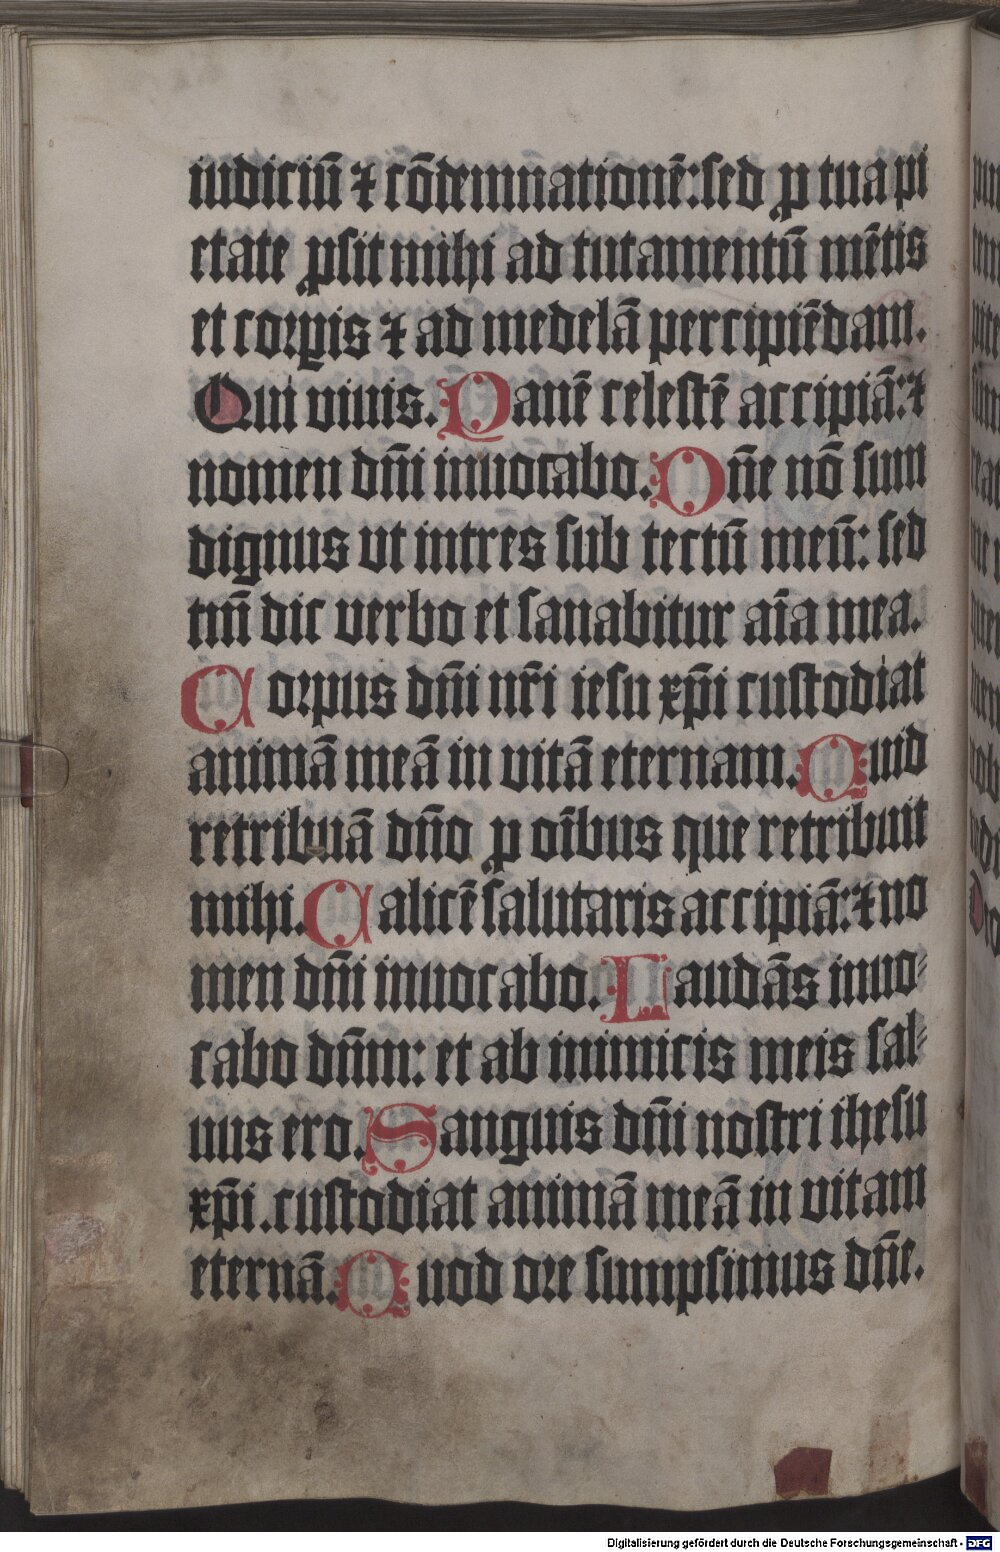 iudiciū ⁊ cōdemn̄ationē: sed ꝓ tua pi
etate ꝓsit mihi ad tutamentū mētis
et corꝑis ⁊ ad medelā percipiēdam.
Qui viuis. Panē celestē accipiā: ⁊
nomen dn̄i inuocabo. Dn̄e nō sum
dignus vt intres sub tectū meū: sed
tm̄ dic verbo et sanabitur aīa mea.
Corpus dn̄i nr̄i iesu xp̄i custodiat
animā meā in vitā eternam. Quid
retribuā dn̄o ꝓ oībus que retribuit
mihi. Calicē salutaris accipiā: ⁊ no
men dn̄i inuocabo. Laudās inuo-
cabo dn̄m: et ab inimicis meis sal-
uus ero. Sanguis dn̄i nostri ihesu
xp̄i. custodiat animā meā in vitam
eternā. Quod ore sumpsimus dn̄e.
Digitalisierung gefördert durch die Deutsche Forschungsgemeinschaft - DFG